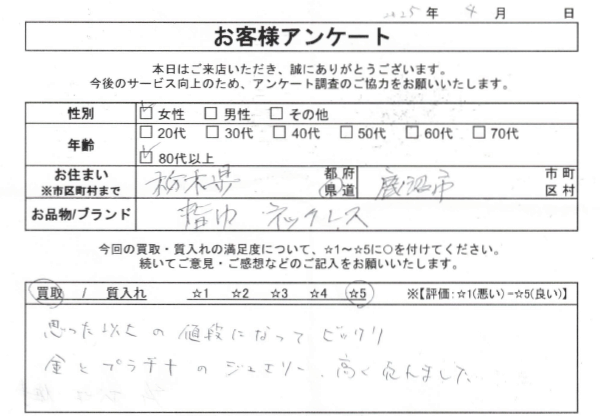 2025 年 4 月 日
お客様アンケート
本日はご来店いただき、誠にありがとうございます。
今後のサービス向上のため、アンケート調査のご協力をお願いいたします。
性別 ☑ 女性 □ 男性 □ その他
年齢 □ 20代 □ 30代 □ 40代 □ 50代 □ 60代 □ 70代
☑ 80代以上
お住まい ※市区町村まで 栃木県 都府県道 鹿沼市 市町区村
お品物/ブランド 指巾 ネックレス
今回の買取・質入れの満足度について、☆1～☆5に○を付けてください。
続いてご意見・ご感想などのご記入をお願いいたします。
買取 / 質入れ ☆1 ☆2 ☆3 ☆4 ☆5 ※【評価:☆1(悪い)－☆5(良い)】
思った以上の値段になってビックリ
金とプラチナのジュエリー、高く売れました